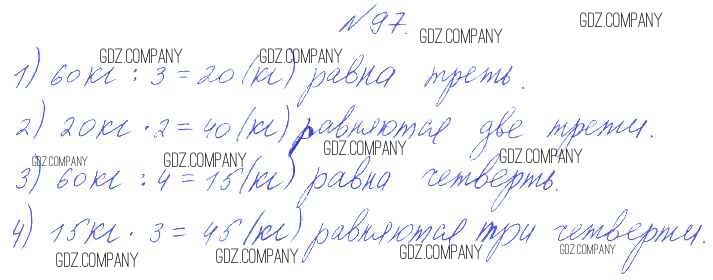 №97.
GDZ.COMPANY
GDZ.COMPANY
GDZ.COMPANY
GDZ.COMPANY
1) 60кг : 3 = 20 (кг) равна треть.
2) 20кг · 2 = 40 (кг) равняются две трети.
GDZ.COMPANY
GDZ.COMPANY
GDZ.COMPANY
GDZ.COMPANY
3) 60кг : 4 = 15 (кг) равна четверть.
4) 15кг · 3 = 45 (кг) равняются три четверти.
GDZ.COMPANY
GDZ.COMPANY
GDZ.COMPANY
GDZ.COMPANY